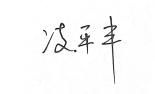 凌平丰